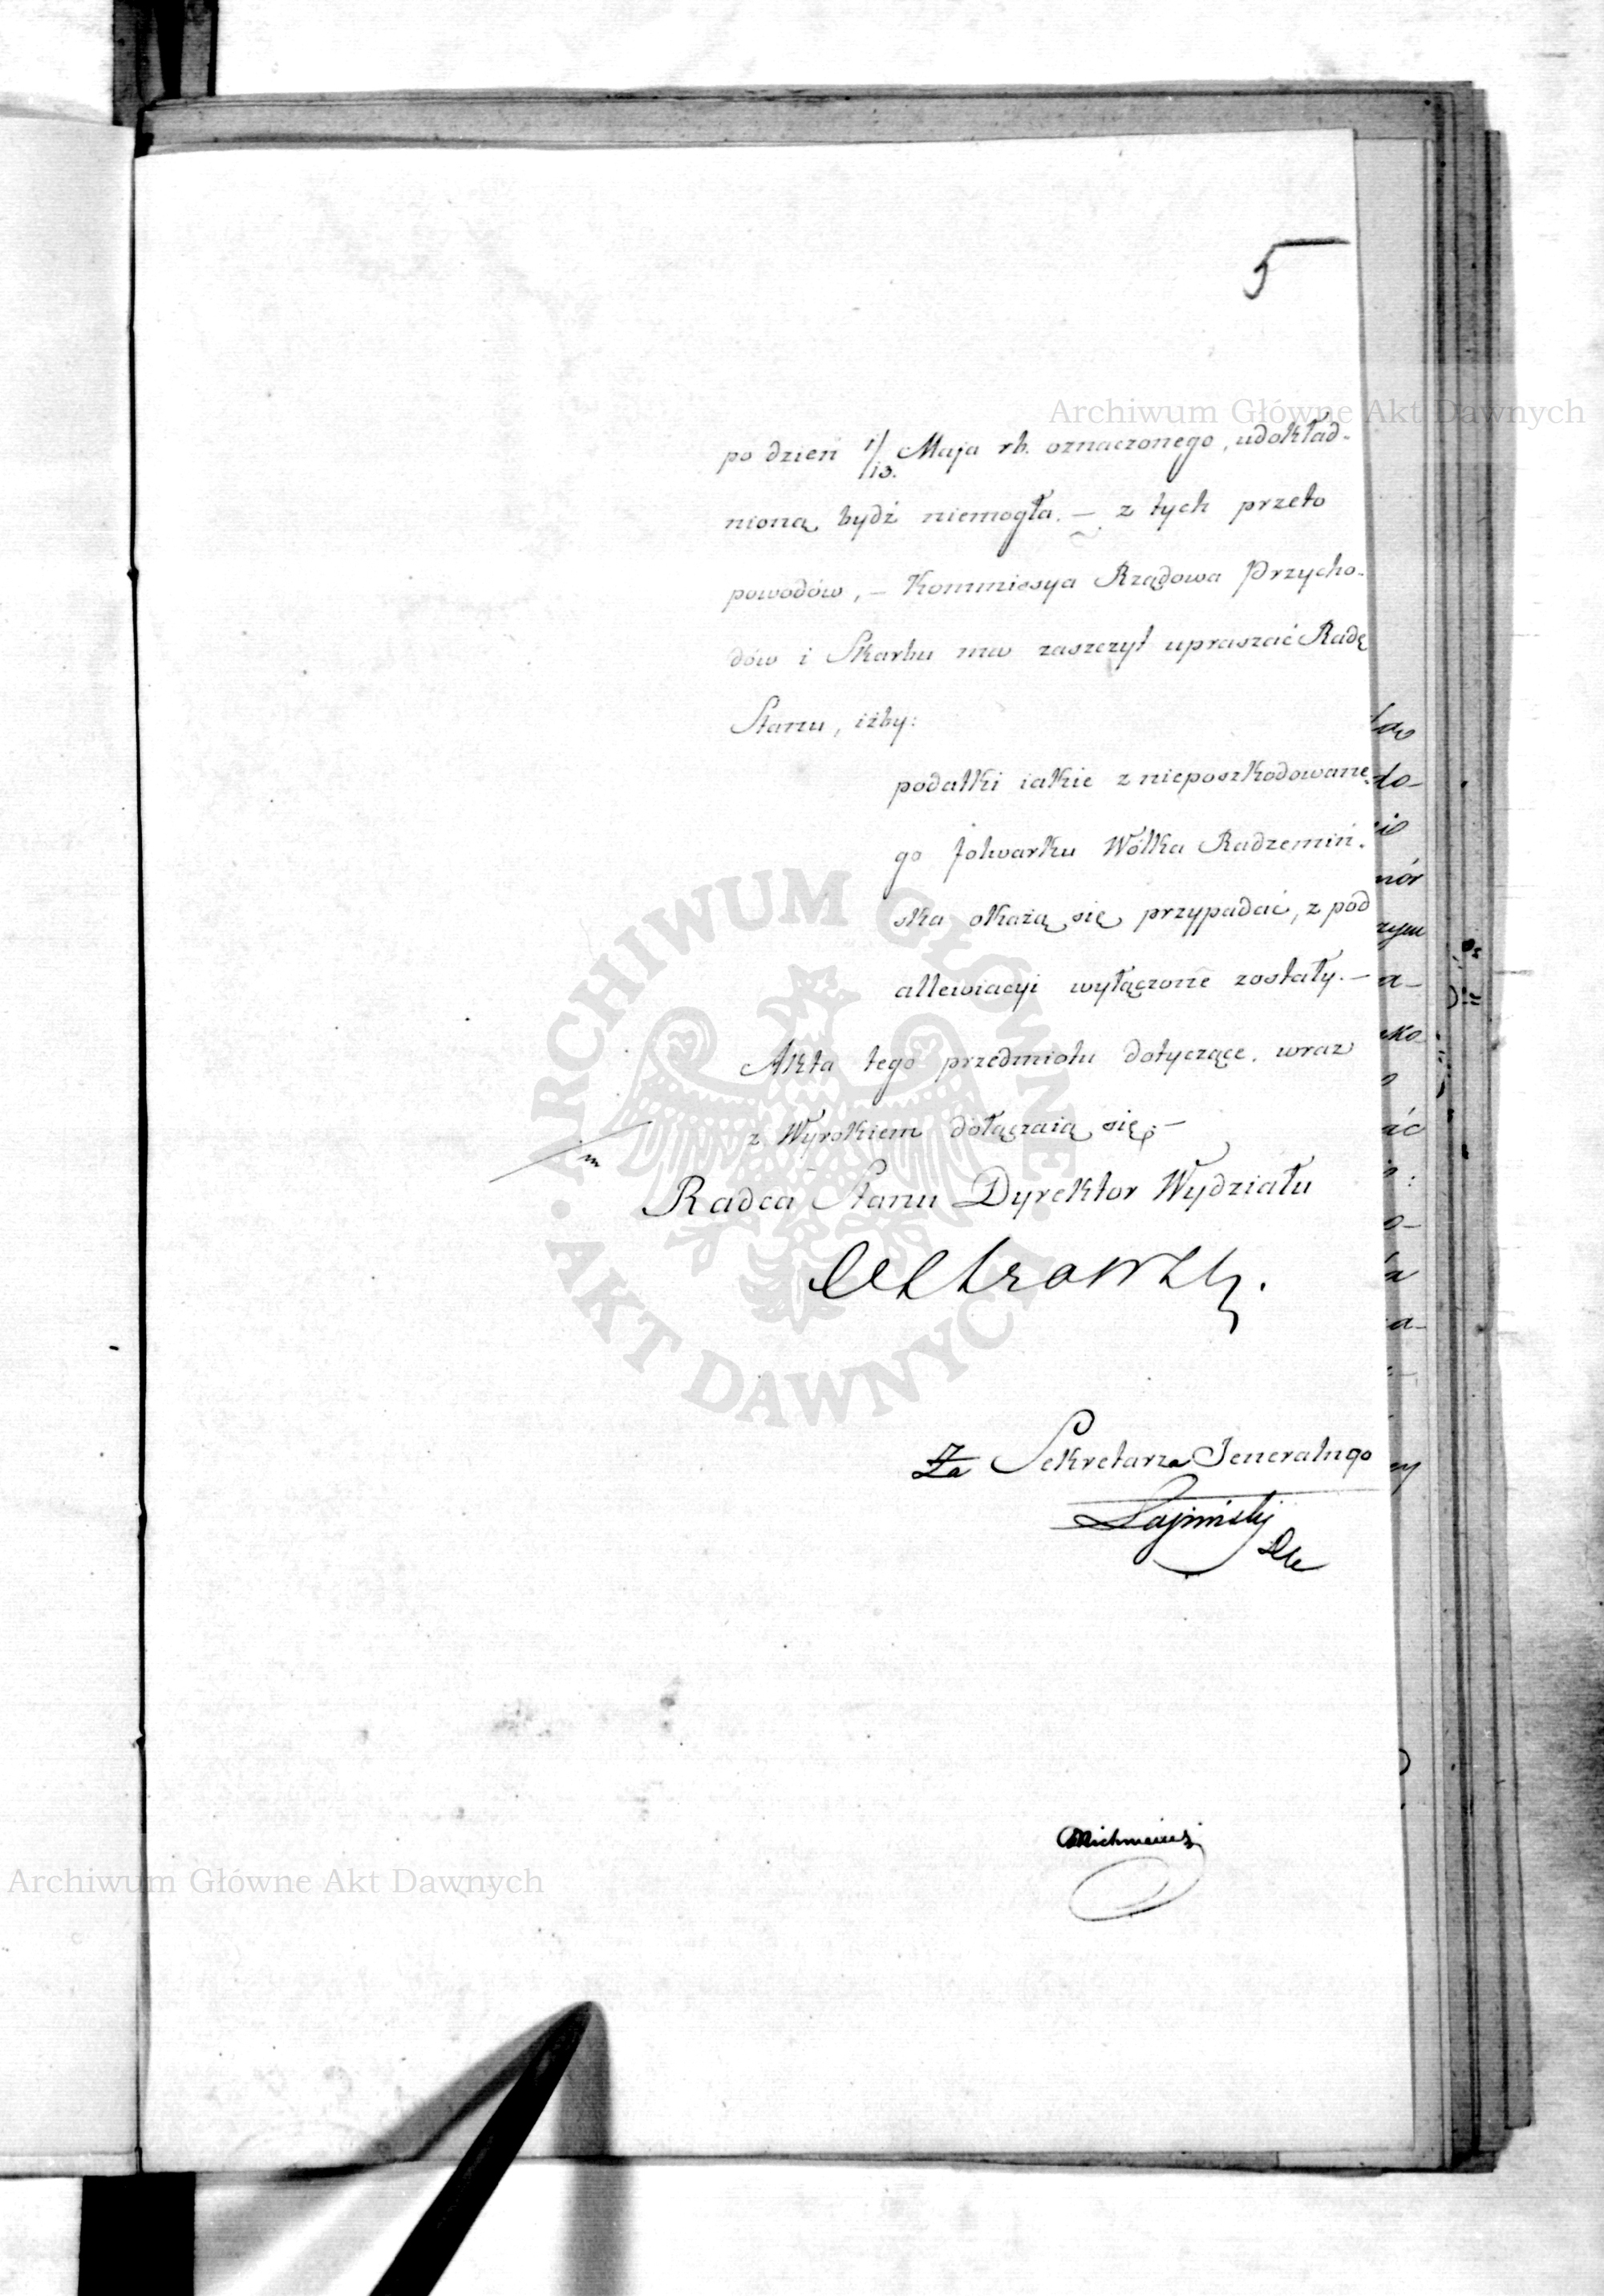 5
Archiwum Główne Akt Dawnych
po dzień 1/13. Maja rb. oznaczonego, udokład-
nioną bydź niemogła. — z tych przeto
powodów, — Kommissya Rządowa Przycho-
dów i Skarbu ma zaszczyt upraszać Radę
Stanu, iżby:
podatki iakie z nieposzkodowane-
go folwarku Wólka Radzemiń-
ska okażą się przypadać, z pod
allewiacyi wyłączone zostały. —
Akta tego przedmiotu dotyczące, wraz
z Wyrokiem dołączaią się. —
Radca Stanu Dyrektor Wydziału
Za Sekretarza Jeneralnego
ARCHIWUM GŁÓWNE
AKT DAWNYCH
Archiwum Główne Akt Dawnych